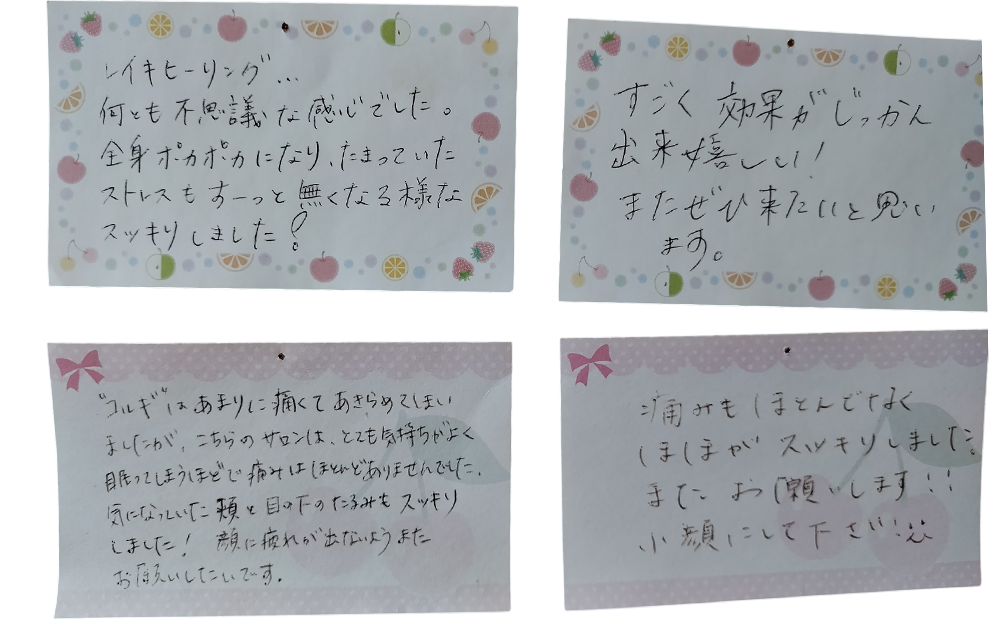 レイキヒーリング…
何とも不思議な感じでした。
全身ポカポカになり、たまっていた
ストレスもすーっと無くなる様な
スッキリしました!
すごく効果がじっかん
出来嬉しい!
またぜひ来たいと思い
ます。
"コルギ"はあまりに痛くてあきらめてしまい
ましたが、こちらのサロンは、とても気持ちがよく
眠ってしまうほどで痛みはほとんどありませんでした。
気になっていた頬と目の下のたるみもスッキリ
しました! 顔に疲れが出ないようまた
お願いしたいです。
痛みもほとんでなく
ほほがスッキリしました。
またお願いします!!
小顔にして下さい